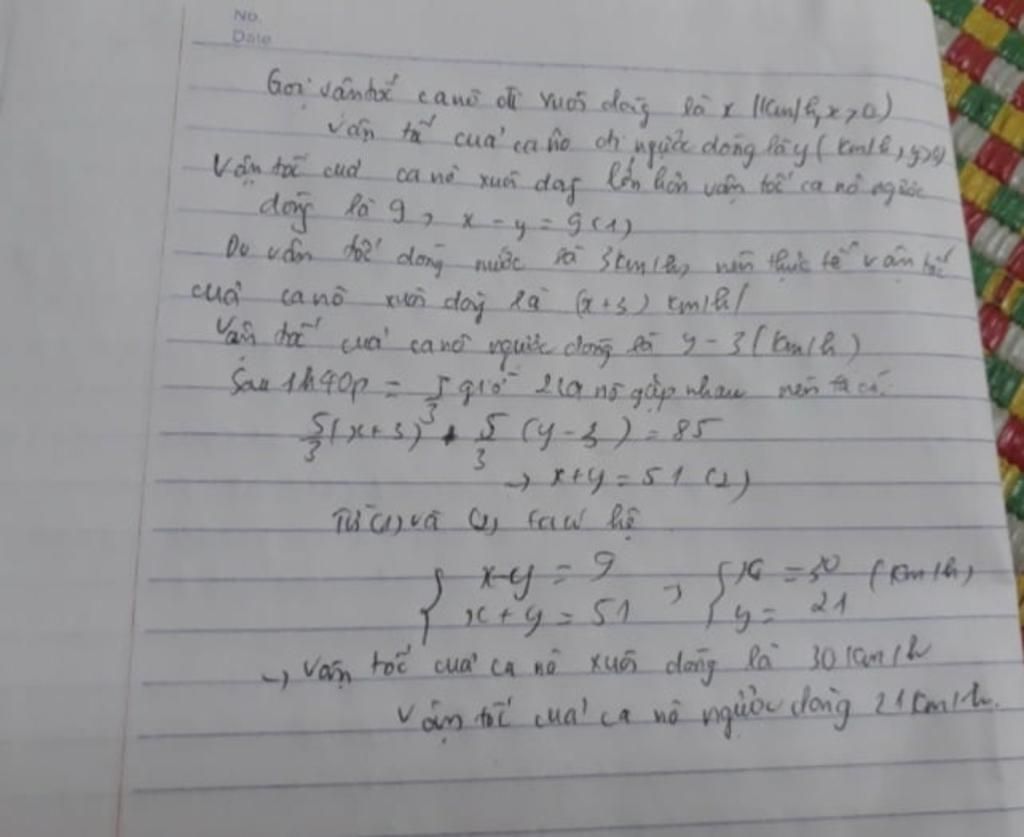 No.
Date
Gọi vận tốc ca nô đi xuôi dòng là x (km/h, x>0)
Vận tốc của ca nô đi ngược dòng là y (km/h, y>0)
Vận tốc của ca nô xuôi dòng lớn hơn vận tốc ca nô ngược
dòng là 9, x - y = 9 (1)
Do vận tốc dòng nước là 3km/h, nên thực tế vận tốc
của ca nô xuôi dòng là (x+3) km/h
Vận tốc của ca nô ngược dòng là y - 3 (km/h)
Sau 1h40p = 5/3 giờ 2 ca nô gặp nhau nên ta có:
5/3 (x+3) + 5/3 (y-3) = 85
→ x+y = 51 (2)
Từ (1) và (2) ta có hệ
{ x-y = 9 → { x = 30 (km/h)
x+y = 51 y = 21
→ Vận tốc của ca nô xuôi dòng là 30 km/h
Vận tốc của ca nô ngược dòng 21 km/h.